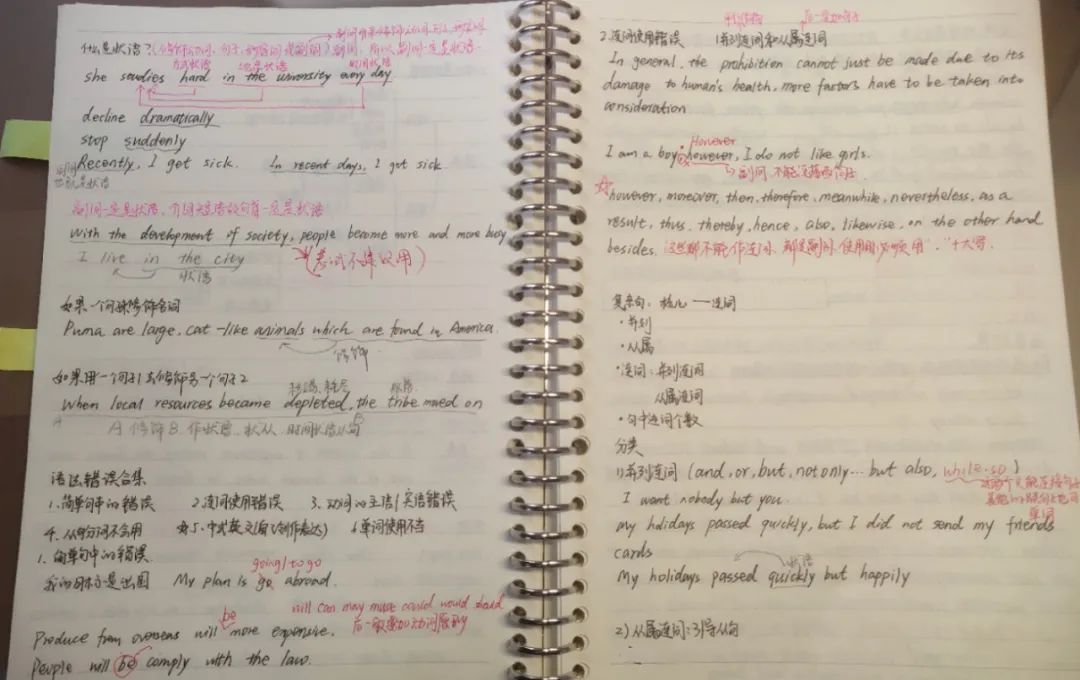 什么是状语？(修饰动词、句子、形容词或副词) 副词，所以副词一定是状语.
方式状语 地点状语 时间状语
she studies hard in the university every day
decline dramatically
stop suddenly
Recently, I got sick. In recent days, I got sick
副词一定是状语，介词短语放句首一定是状语
With the development of society, people become more and more busy
I live in the city (考试不建议用)
状语
如果一个句子修饰名词
Puma are large, cat-like animals which are found in America.
修饰
如果用一个句子1去修饰另一个句子2
When local resources became depleted, the tribe moved on
A B
A 修饰 B 作状语 状从 时间状语从句
语法错误合集
1.简单句中的错误 2.连词使用错误 3.动词的主语/宾语错误
4.从句分词不会用 5.中式英文 6.单词使用不当
1.简单句中的错误
going/to go
我的目标是出国 My plan is go abroad.
be will can may must could would should
Produce from overseas will more expensive. 后一般要加动词原形
People will be comply with the law.
2.连词使用错误 并列连词和从属连词
In general, the prohibition cannot just be made due to its
damage to human's health, more factors have to be taken into
consideration
However
I am a boy, however, I do not like girls.
副词，不能连接两句子
however, moreover, then, therefore, meanwhile, nevertheless, as a
result, thus, thereby, hence, also, likewise, on the other hand
besides. 这些都不能作连词，都是副词，使用时必须用"."+大写.
复杂句：核心——连词
·并列
·从属
·连词：并列连词
从属连词
·句中连词个数
分类
1)并列连词 (and, or, but, not only... but also, while, so)
I want nobody but you.
这两个只能连接句子
其他的既能句子也可
单词
my holidays passed quickly, but I did not send my friends
cards
状语
My holidays passed quickly but happily
2)从属连词：引导从句